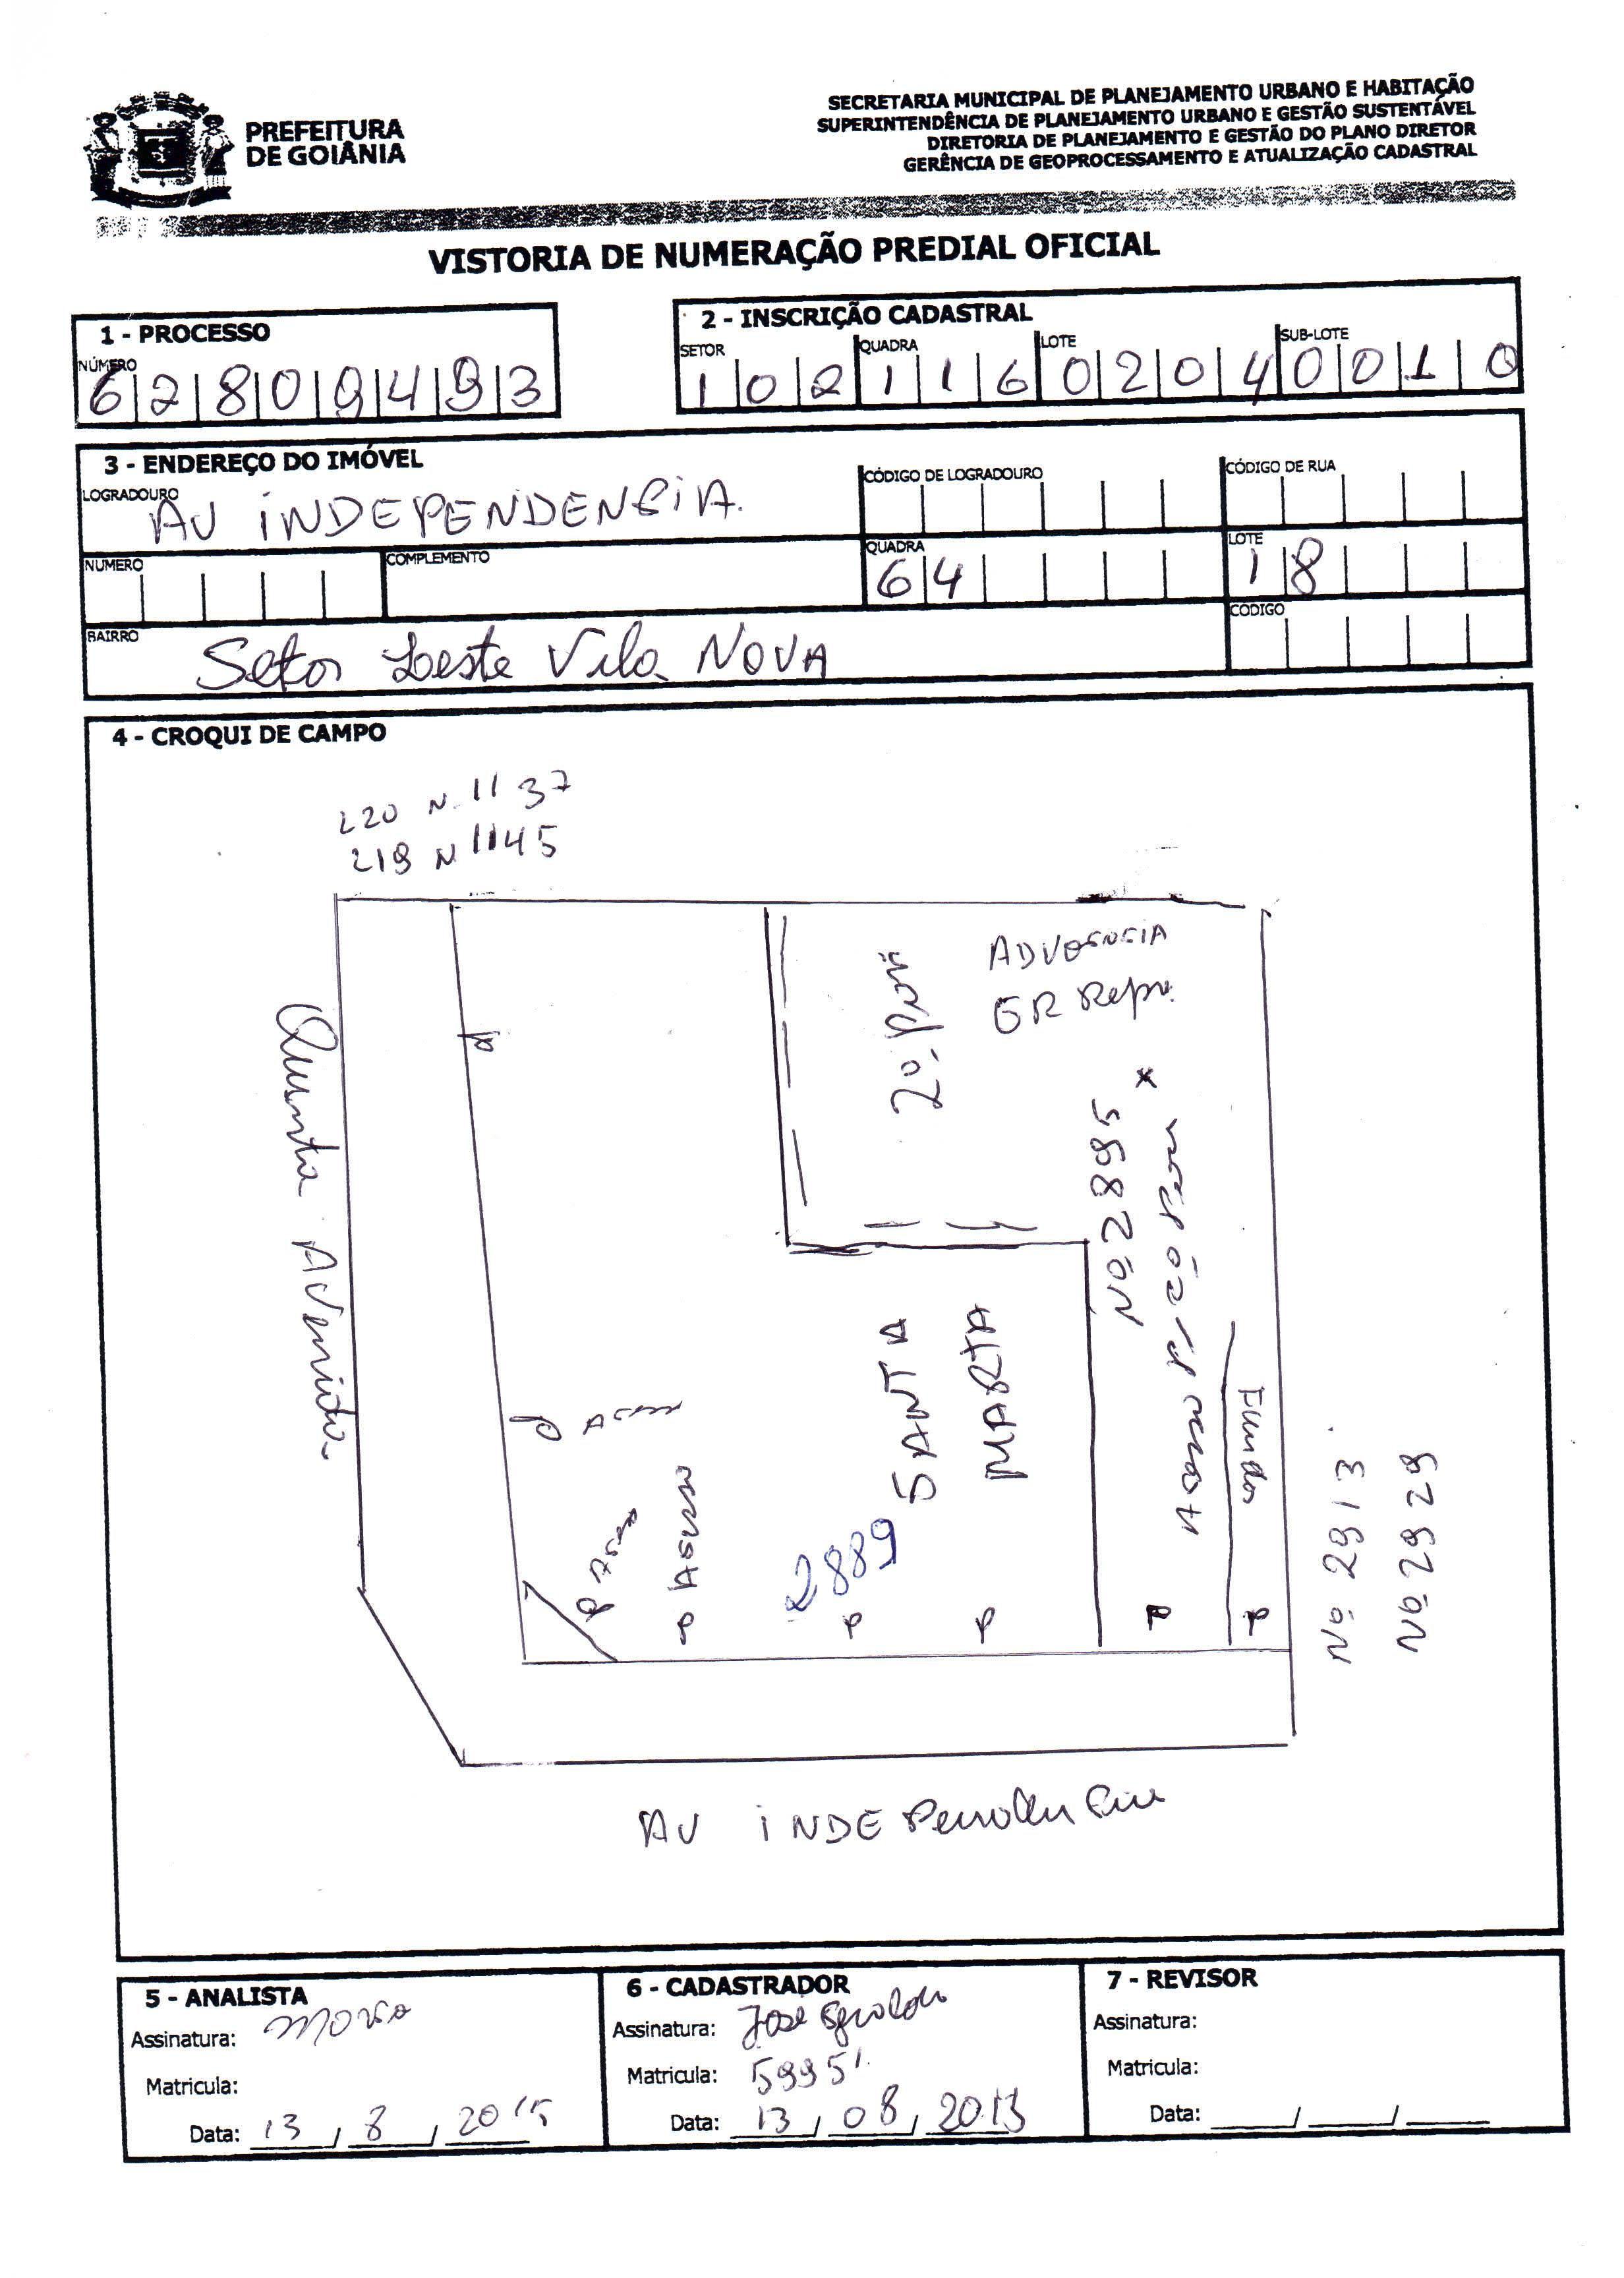 PREFEITURA
DE GOIÂNIA
SECRETARIA MUNICIPAL DE PLANEJAMENTO URBANO E HABITAÇÃO
SUPERINTENDÊNCIA DE PLANEJAMENTO URBANO E GESTÃO SUSTENTÁVEL
DIRETORIA DE PLANEJAMENTO E GESTÃO DO PLANO DIRETOR
GERÊNCIA DE GEOPROCESSAMENTO E ATUALIZAÇÃO CADASTRAL
VISTORIA DE NUMERAÇÃO PREDIAL OFICIAL
1 - PROCESSO
NÚMERO
6 2 8 0 9 4 9 3
2 - INSCRIÇÃO CADASTRAL
SETOR QUADRA LOTE SUB-LOTE
1 0 2 1 1 6 0 2 0 4 0 0 1 0
3 - ENDEREÇO DO IMÓVEL
LOGRADOURO
AV INDEPENDENCIA.
CÓDIGO DE LOGRADOURO
CÓDIGO DE RUA
NÚMERO
COMPLEMENTO
QUADRA
6 4
LOTE
1 8
BAIRRO
Setor Leste Vila NOVA
CÓDIGO
4 - CROQUI DE CAMPO
L20 N. 1137
L19 N 1145
Quinta Avenida
2º. Pavi
ADVOCACIA
GR Repr.
Nº 2895
SANTA
MARTA
2889
Acesso
Fundos
Nº 2913
Nº 2929
AV INDEPendencia
5 - ANALISTA
Assinatura:
Matricula:
Data: 13 / 8 / 2015
6 - CADASTRADOR
Assinatura: José
Matricula: 59951
Data: 13 / 08 / 2013
7 - REVISOR
Assinatura:
Matricula:
Data: ____/____/____